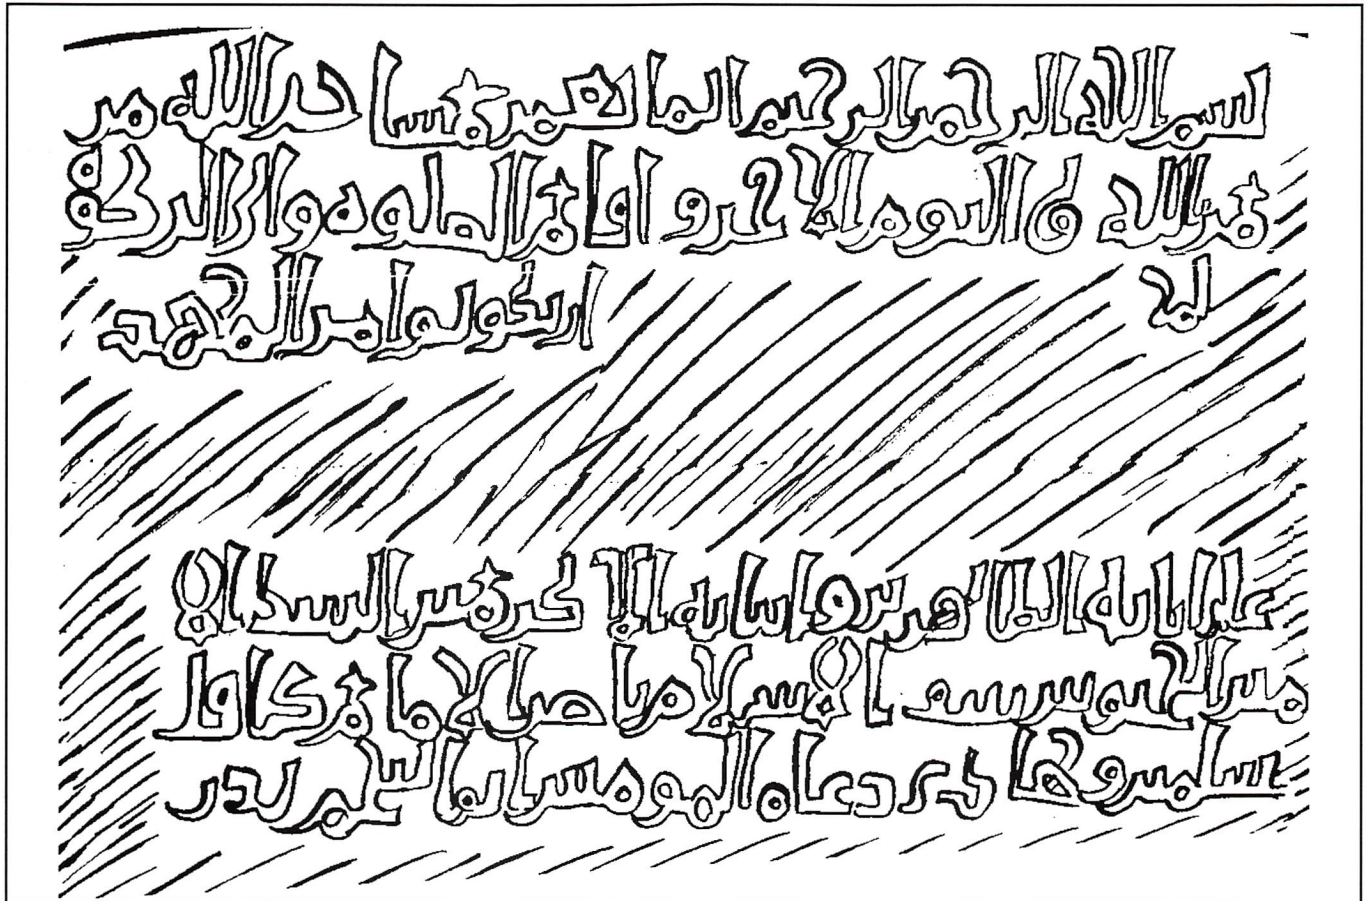 بسم الله الرحمن الرحيم انما يعمر مساجد الله من
من بالله و اليوم الاخر و اقام الصلوة واتى الزكوة
ان يكونوا من المهتد
على ابائه الطاهرين وابنائه الاكرمين السيد الا
مير الجيوش سيف الاسلام ناصر الامام كافل
سلمين وهادى دعاة المومنين بدر